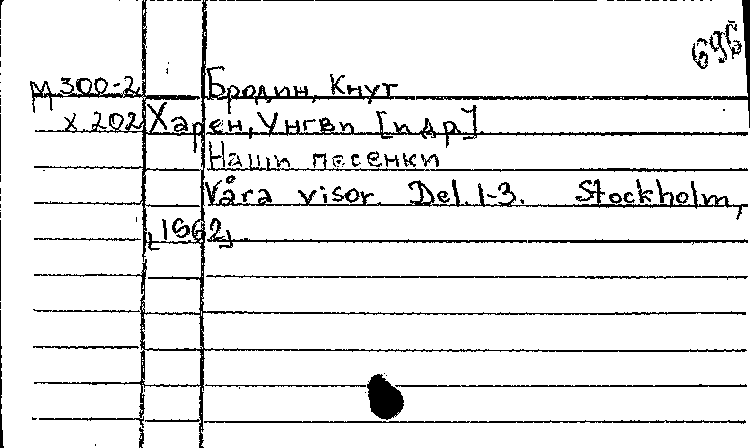 696
М 300-2 Бродин, Кнут
Х 202 Харен, Унгви [и др]
Наши песенки
Våra visor. Del. 1-3. Stockholm,
[1962].